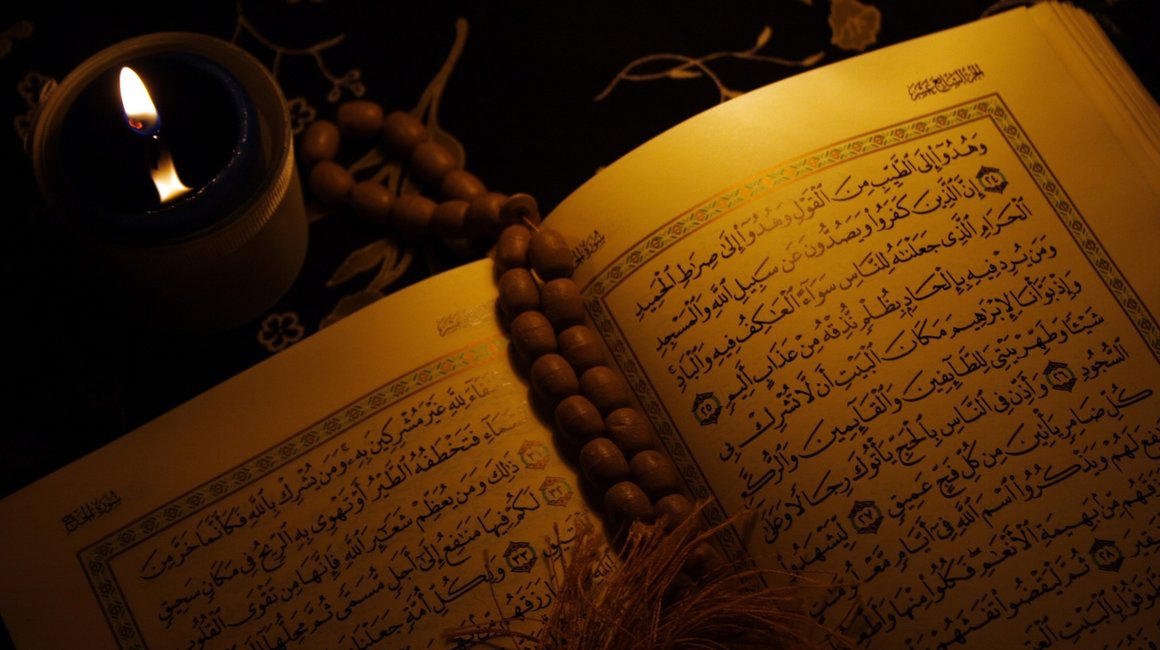 الجزء السابع عشر
وَهُدُوٓا۟ إِلَى ٱلطَّيِّبِ مِنَ ٱلْقَوْلِ وَهُدُوٓا۟ إِلَىٰ صِرَٰطِ ٱلْحَمِيدِ
٢٤ إِنَّ ٱلَّذِينَ كَفَرُوا۟ وَيَصُدُّونَ عَن سَبِيلِ ٱللَّهِ وَٱلْمَسْجِدِ
ٱلْحَرَامِ ٱلَّذِى جَعَلْنَٰهُ لِلنَّاسِ سَوَآءً ٱلْعَٰكِفُ فِيهِ وَٱلْبَادِ
وَمَن يُرِدْ فِيهِ بِإِلْحَادٍۭ بِظُلْمٍ نُّذِقْهُ مِنْ عَذَابٍ أَلِيمٍ ٢٥
وَإِذْ بَوَّأْنَا لِإِبْرَٰهِيمَ مَكَانَ ٱلْبَيْتِ أَن لَّا تُشْرِكْ بِى
شَيْـًٔا وَطَهِّرْ بَيْتِىَ لِلطَّآئِفِينَ وَٱلْقَآئِمِينَ وَٱلرُّكَّعِ
ٱلسُّجُودِ ٢٦ وَأَذِّن فِى ٱلنَّاسِ بِٱلْحَجِّ يَأْتُوكَ رِجَالًا وَعَلَىٰ
كُلِّ ضَامِرٍ يَأْتِينَ مِن كُلِّ فَجٍّ عَمِيقٍ ٢٧ لِّيَشْهَدُوا۟
لَهُمْ وَيَذْكُرُوا۟ ٱسْمَ ٱللَّهِ فِىٓ أَيَّامٍ
مِّنۢ بَهِيمَةِ ٱلْأَنْعَٰمِ فَكُلُوا۟ مِنْهَا
٢٨ ثُمَّ لْيَقْضُوا۟ تَفَثَهُمْ
بِٱلْبَيْتِ
سورة الحج
لِلَّهِ غَيْرَ مُشْرِكِينَ بِهِۦ وَمَن يُشْرِكْ بِٱللَّهِ فَكَأَنَّمَا خَرَّ مِنَ
فَتَخْطَفُهُ ٱلطَّيْرُ أَوْ تَهْوِى بِهِ ٱلرِّيحُ فِى مَكَانٍ سَحِيقٍ
٣١ ذَٰلِكَ وَمَن يُعَظِّمْ شَعَٰٓئِرَ ٱللَّهِ فَإِنَّهَا مِن تَقْوَى ٱلْقُلُوبِ
٣٢ لَكُمْ فِيهَا مَنَٰفِعُ إِلَىٰٓ أَجَلٍ مُّسَمًّى ثُمَّ مَحِلُّهَآ
٣٣ وَلِكُلِّ أُمَّةٍ جَعَلْنَا